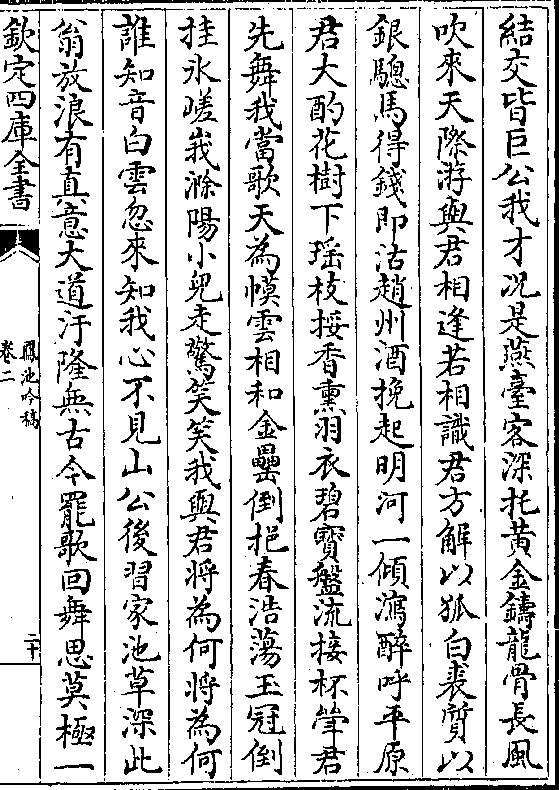 結交皆巨公我才况是燕臺客深托黄金鑄龍骨長風
吹來天際游與君相逢若相識君方解以狐白裘質以
銀驄馬得錢即沽趙州酒挽起明河一傾瀉醉呼平原
君大酌花樹下瑶枝挼香熏羽衣碧寳盤流接杯斝君
先舞我當歌天為幙雲相和金罍倒挹春浩蕩玉冠倒
挂氷嵯峩滁陽小兒走驚笑笑我與君將為何將為何
誰知音白雲忽來知我心不見山公後習家池草深此
翁放浪有真意大道汙隆無古今罷歌回舞思莫極一
欽定四庫全書
鳳池吟稿
卷二
二十